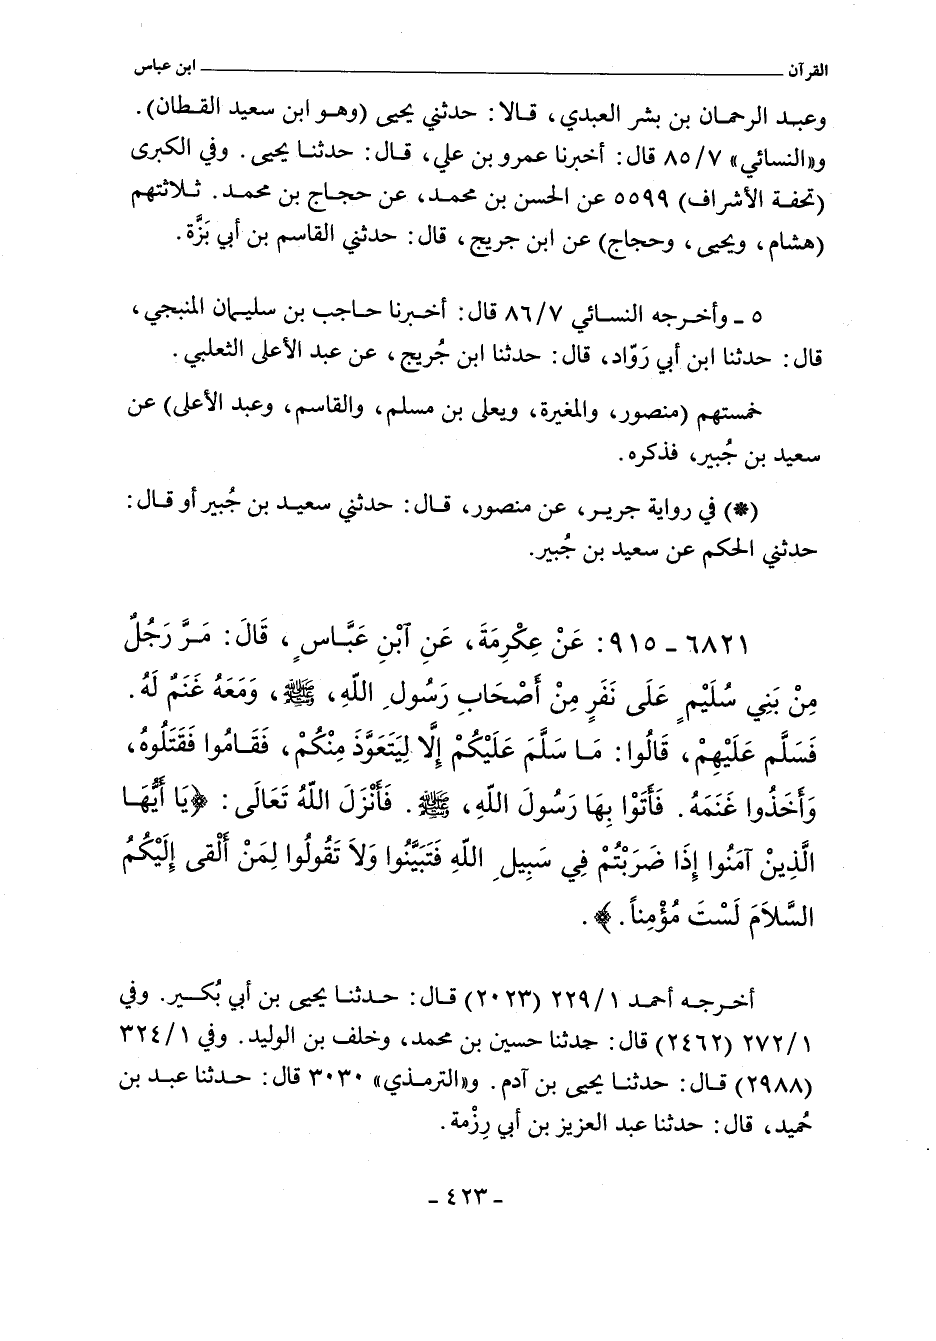 القرآن ــــــ ابن عباس
وعبد الرحمان بن بشر العبدي، قالا: حدثني يحيى (وهو ابن سعيد القطان).
و«النسائي» ٨٥/٧ قال: أخبرنا عمرو بن علي، قال: حدثنا يحيى. وفي الكبرى
(تحفة الأشراف) ٥٥٩٩ عن الحسن بن محمد، عن حجاج بن محمد. ثلاثتهم
(هشام، ويحيى، وحجاج) عن ابن جريج، قال: حدثني القاسم بن أبي بَزَّة.
٥ - وأخرجه النسائي ٨٦/٧ قال: أخبرنا حاجب بن سليمان المنبجي،
قال: حدثنا ابن أبي رَوّاد، قال: حدثنا ابن جُريج، عن عبد الأعلى الثعلبي.
خمستهم (منصور، والمغيرة، ويعلى بن مسلم، والقاسم، وعبد الأعلى) عن
سعيد بن جُبير، فذكره.
(*) في رواية جرير، عن منصور، قال: حدثني سعيد بن جُبير أو قال:
حدثني الحكم عن سعيد بن جُبير.
٦٨٢١ - ٩١٥: عَنْ عِكْرِمَةَ، عَنِ آبْنِ عَبَّاسٍ، قَالَ: مَرَّ رَجُلٌ
مِنْ بَنِي سُلَيْمٍ عَلَى نَفَرٍ مِنْ أَصْحَابِ رَسُولِ اللّهِ، ﷺ، وَمَعَهُ غَنَمٌ لَهُ.
فَسَلَّم عَلَيْهِمْ، قَالُوا: مَا سَلَّمَ عَلَيْكُمْ إِلَّا لِيَتَعَوَّذَ مِنْكُمْ، فَقَامُوا فَقَتَلُوهُ،
وَأَخَذُوا غَنَمَهُ. فَأَتَوْا بِهَا رَسُولَ اللّهِ، ﷺ. فَأَنْزَلَ اللّهُ تَعَالَى: ﴿يَا أَيُّهَا
الَّذِينْ آمَنُوا إِذَا ضَرَبْتُمْ فِي سَبِيلِ اللّهِ فَتَبَيَّنُوا وَلاَ تَقُولُوا لِمَنْ أَلْقى إِلَيْكُمُ
السَّلاَمَ لَسْتَ مُؤْمِناً.﴾.
أخرجه أحمد ٢٢٩/١ (٢٠٢٣) قال: حدثنا يحيى بن أبي بُكير. وفي
٢٧٢/١ (٢٤٦٢) قال: حدثنا حسين بن محمد، وخلف بن الوليد. وفي ٣٢٤/١
(٢٩٨٨) قال: حدثنا يحيى بن آدم. و«الترمذي» ٣٠٣٠ قال: حدثنا عبد بن
حُميد، قال: حدثنا عبد العزيز بن أبي رِزْمة.
- ٤٢٣ -